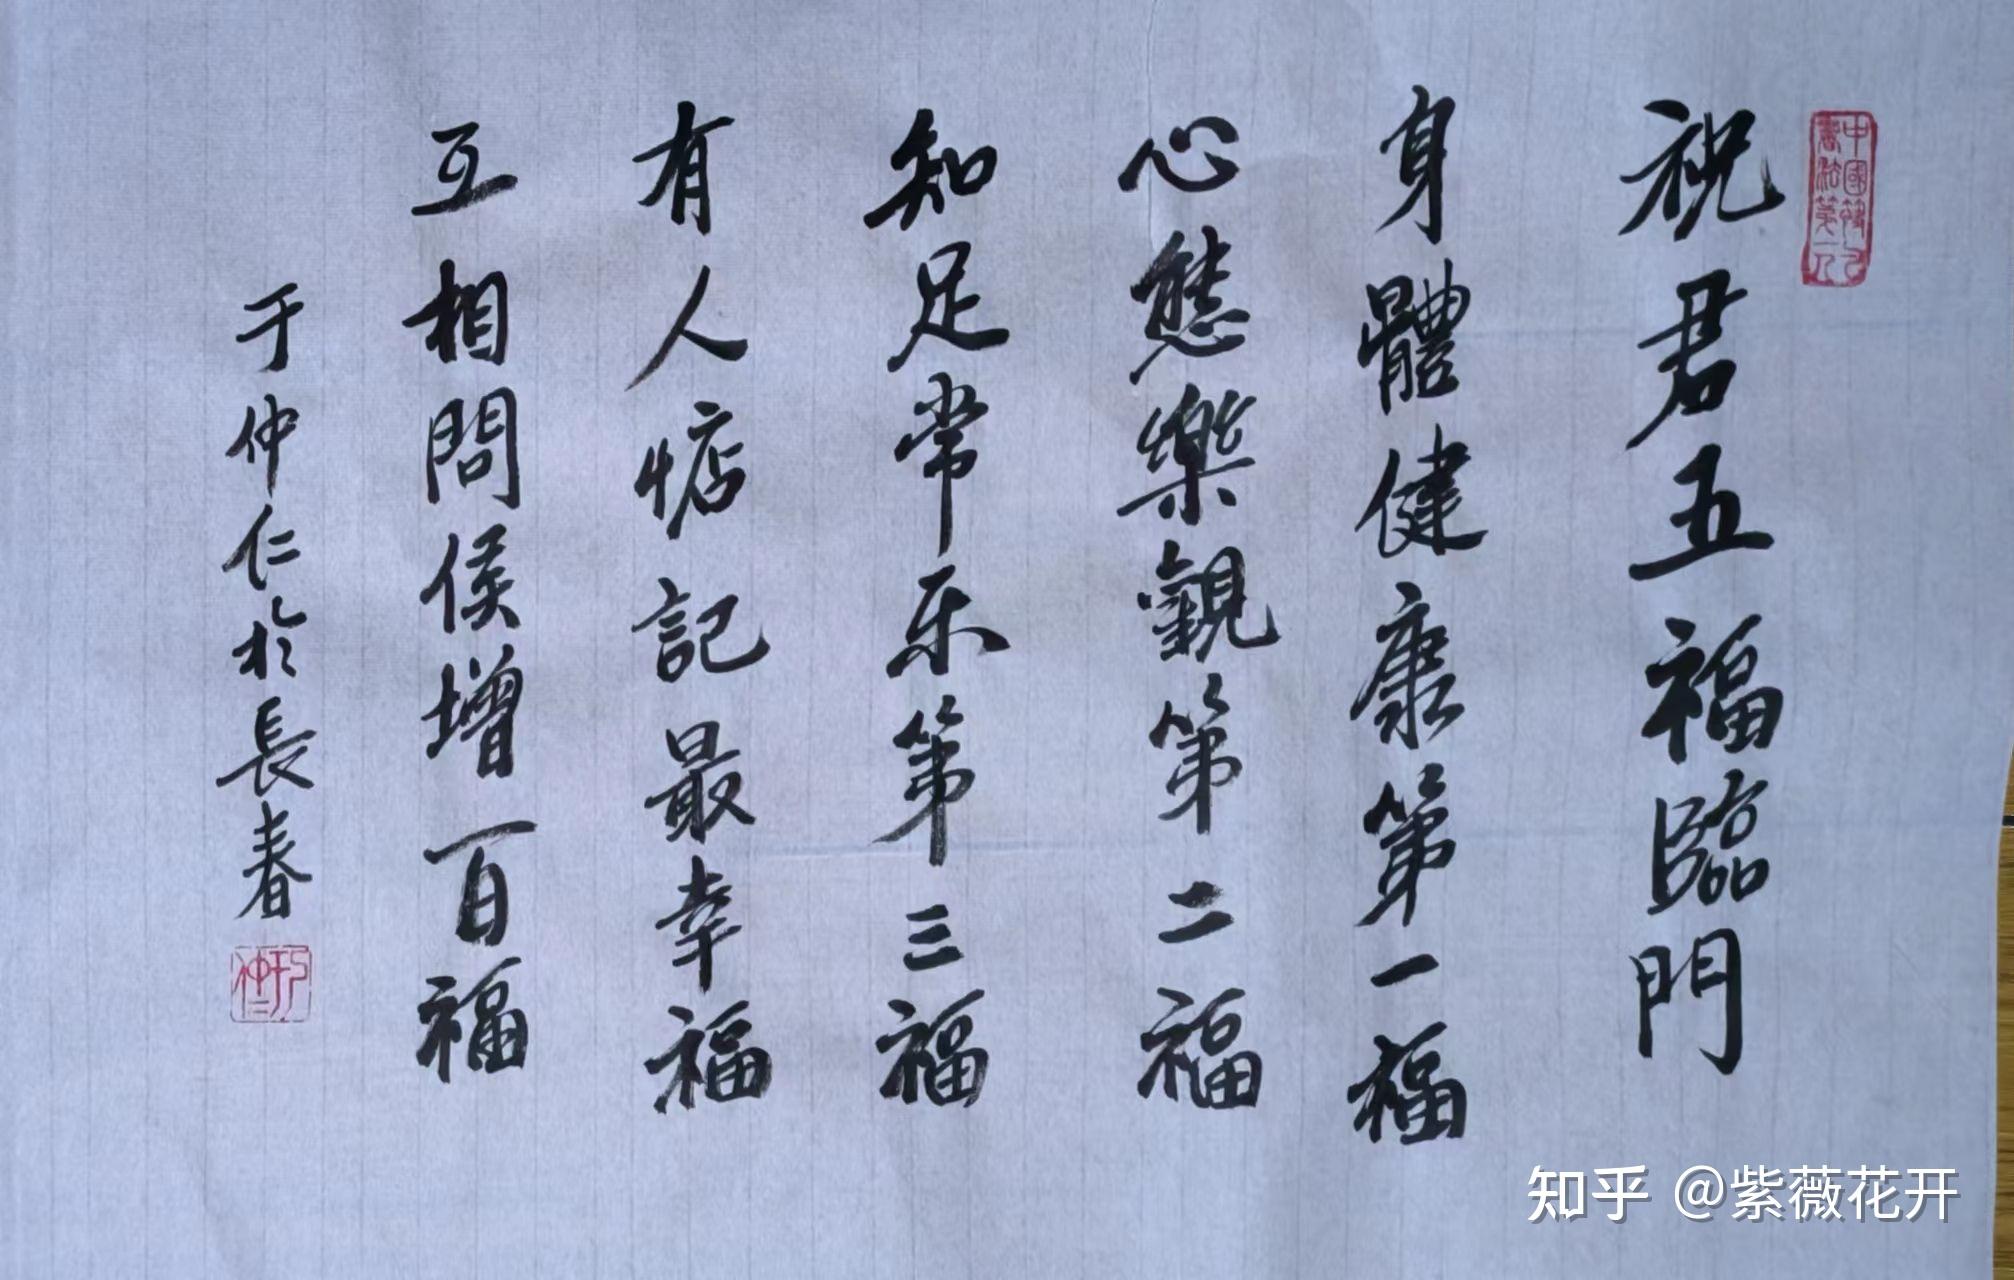 祝君五福臨門
身體健康第一福
心態樂觀第二福
知足常乐第三福
有人惦記最幸福
互相問侯增百福
于仲仁於長春
知乎 @紫薇花开